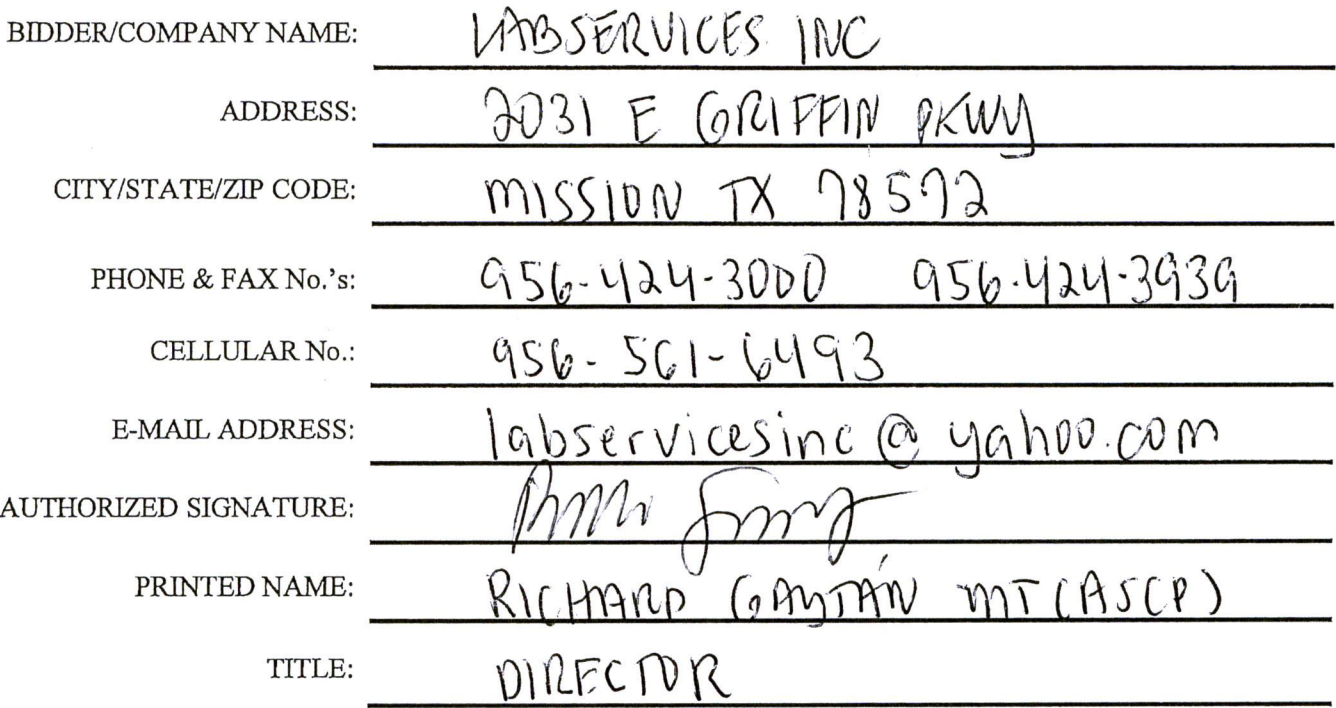 BIDDER/COMPANY NAME: LABSERVICES INC
ADDRESS: 2031 E GRIFFIN PKWY
CITY/STATE/ZIP CODE: MISSION TX 78572
PHONE & FAX No.'s: 956-424-3000 956-424-3939
CELLULAR No.: 956-561-6493
E-MAIL ADDRESS: labservicesinc@yahoo.com
AUTHORIZED SIGNATURE:
PRINTED NAME: RICHARD GAYTÁN MT(ASCP)
TITLE: DIRECTOR